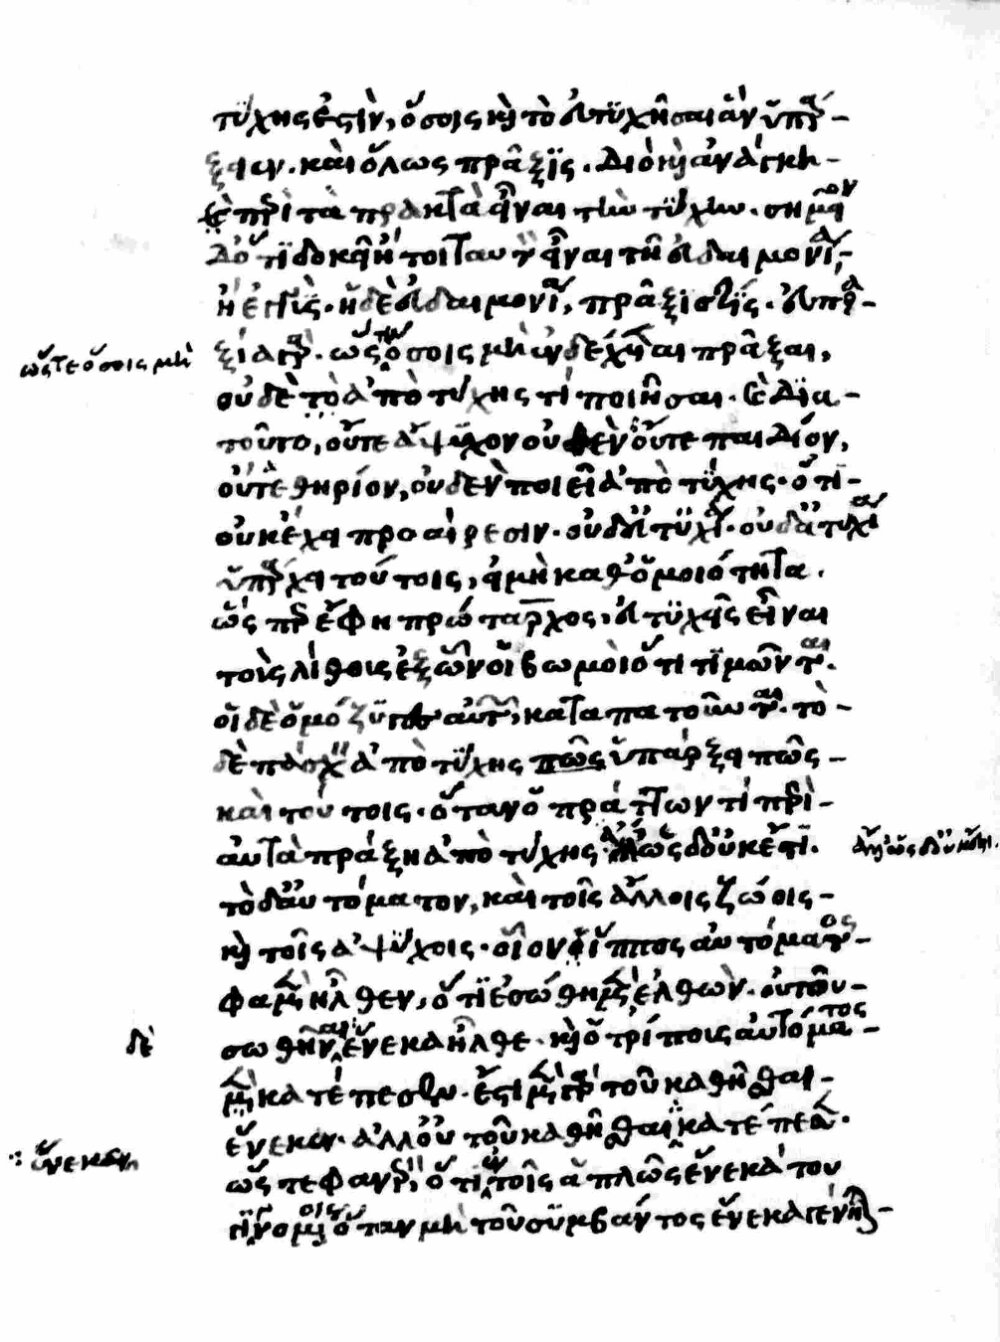 τύχης ἐστὶν, ὅσοις καὶ τὸ εὐτυχῆσαι ἂν ὑπάρ-
ξειεν. καὶ ὅλως πρᾶξις. διὸ καὶ ἀνάγκη-
περὶ τὰ πρακτὰ εἶναι τὴν τύχην. σημεῖον
δ' ὅτι δοκεῖ ἤτοι ταυτὸν εἶναι τῇ εὐδαιμονίᾳ,
ἢ ἐγγύς. ἡ δὲ εὐδαιμονία, πρᾶξις τίς. εὐπρα-
ὥστε ὅσοις μὴ
ξία γάρ. ὥσθ' ὁπόσοις μὴ ἐνδέχεται πρᾶξαι,
οὐδὲ τὸ ἀπὸ τύχης τί ποιῆσαι. καὶ δια-
τοῦτο, οὔτε ἄψυχον οὐδὲν οὔτε παιδίον,
οὔτε θηρίον, οὐδὲν ποιεῖ ἀπὸ τύχης. ὅτι-
οὐκ ἔχει προαίρεσιν. οὐδ' εὐτυχία. οὐδ' ἀτυχία
ὑπάρχει τούτοις, εἰ μὴ καθ' ὁμοιότητα.
ὥσπερ ἔφη πρώταρχος, εὐτυχεῖς εἶναι
τοὺς λίθους ἐξ ὧν οἱ βωμοὶ ὅτι τιμῶνται.
οἱ δὲ ὁμόζυγες αὐτῶν, καταπατοῦνται. τὸ-
δὲ πάσχειν ἀπὸ τύχης ὑπάρξει πῶς-
καὶ τούτοις. ὅταν ὁ πράττων τί περὶ-
αὐτὰ πράξῃ ἀπὸ τύχης ἄλλως δ' οὐκ ἔστι.
ἄλλως δ' οὐκ ἔστι.
τὸ δ' αὐτόματον, καὶ τοῖς ἄλλοις ζώοις-
καὶ τοῖς ἀψύχοις. οἷον ὁ ἵππος αὐτόματος-
φαμὲν ἦλθεν, ὅτι ἐσώθη μὲν ἐλθὼν. οὐ τοῦ-
δὲ
σωθῆναι ἕνεκα ἦλθε. καὶ ὁ τρίπους αὐτόματος-
μὲν κατέπεσεν. ἔστι μὲν γὰρ τοῦ καθῆσθαι-
ἕνεκεν. ἀλλ' οὐ τοῦ καθῆσθαι κατέπεσεν.
ἕνεκεν
ὥστε φανερὸν, ὅτι ἐν τοῖς ἁπλῶς ἕνεκά του
γινομένοις ὅταν μὴ τοῦ συμβάντος ἕνεκα γένηται-